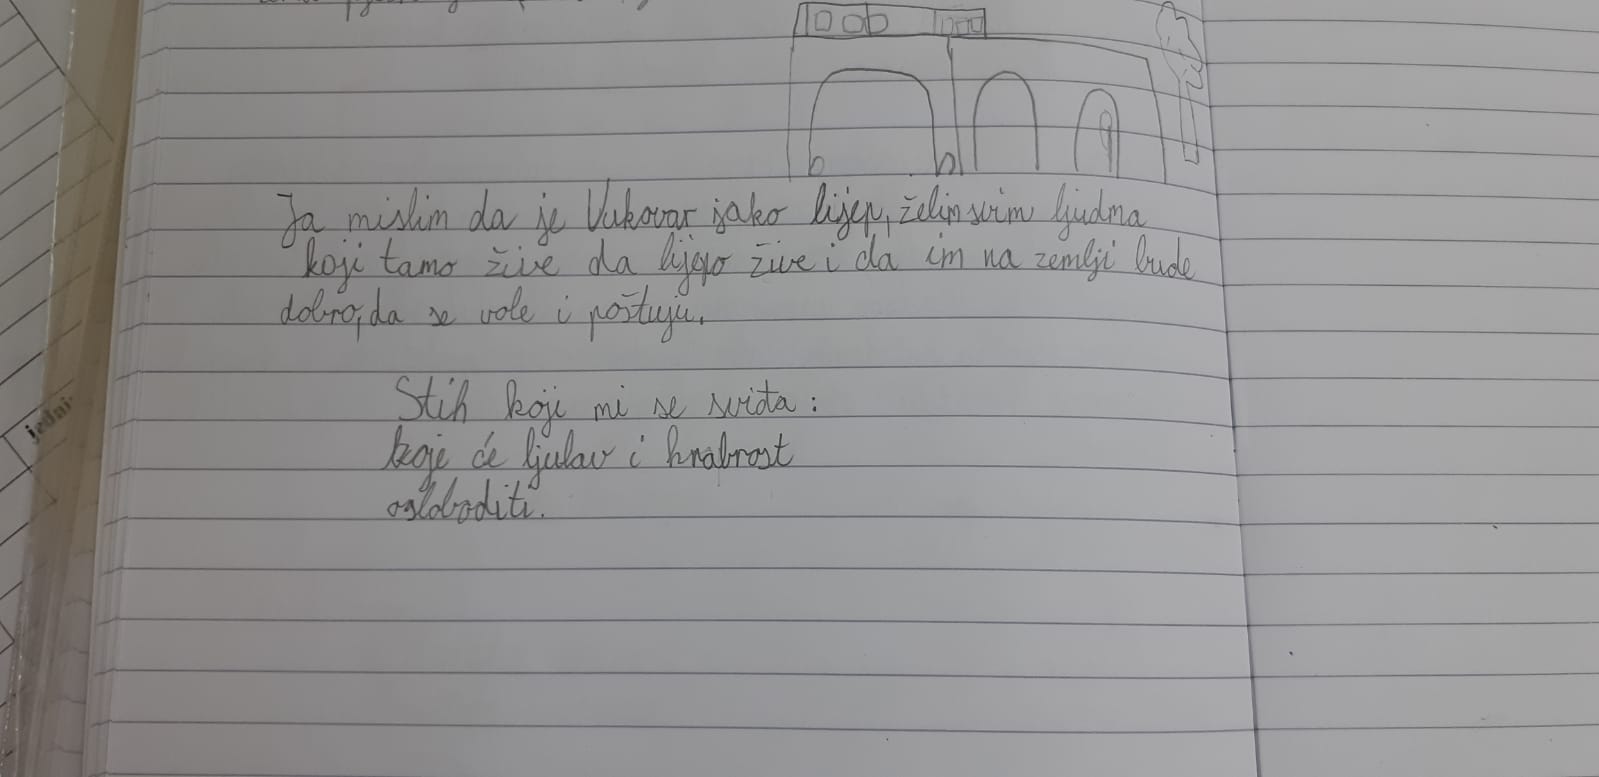 Ja mislim da je Vukovar jako lijep, želim svim ljudma
koji tamo žive da lijepo žive i da im na zemlji bude
dobro, da se vole i poštuju.
Stih koji mi se sviđa:
koje će ljubav i hrabrost
osloboditi.
jedni